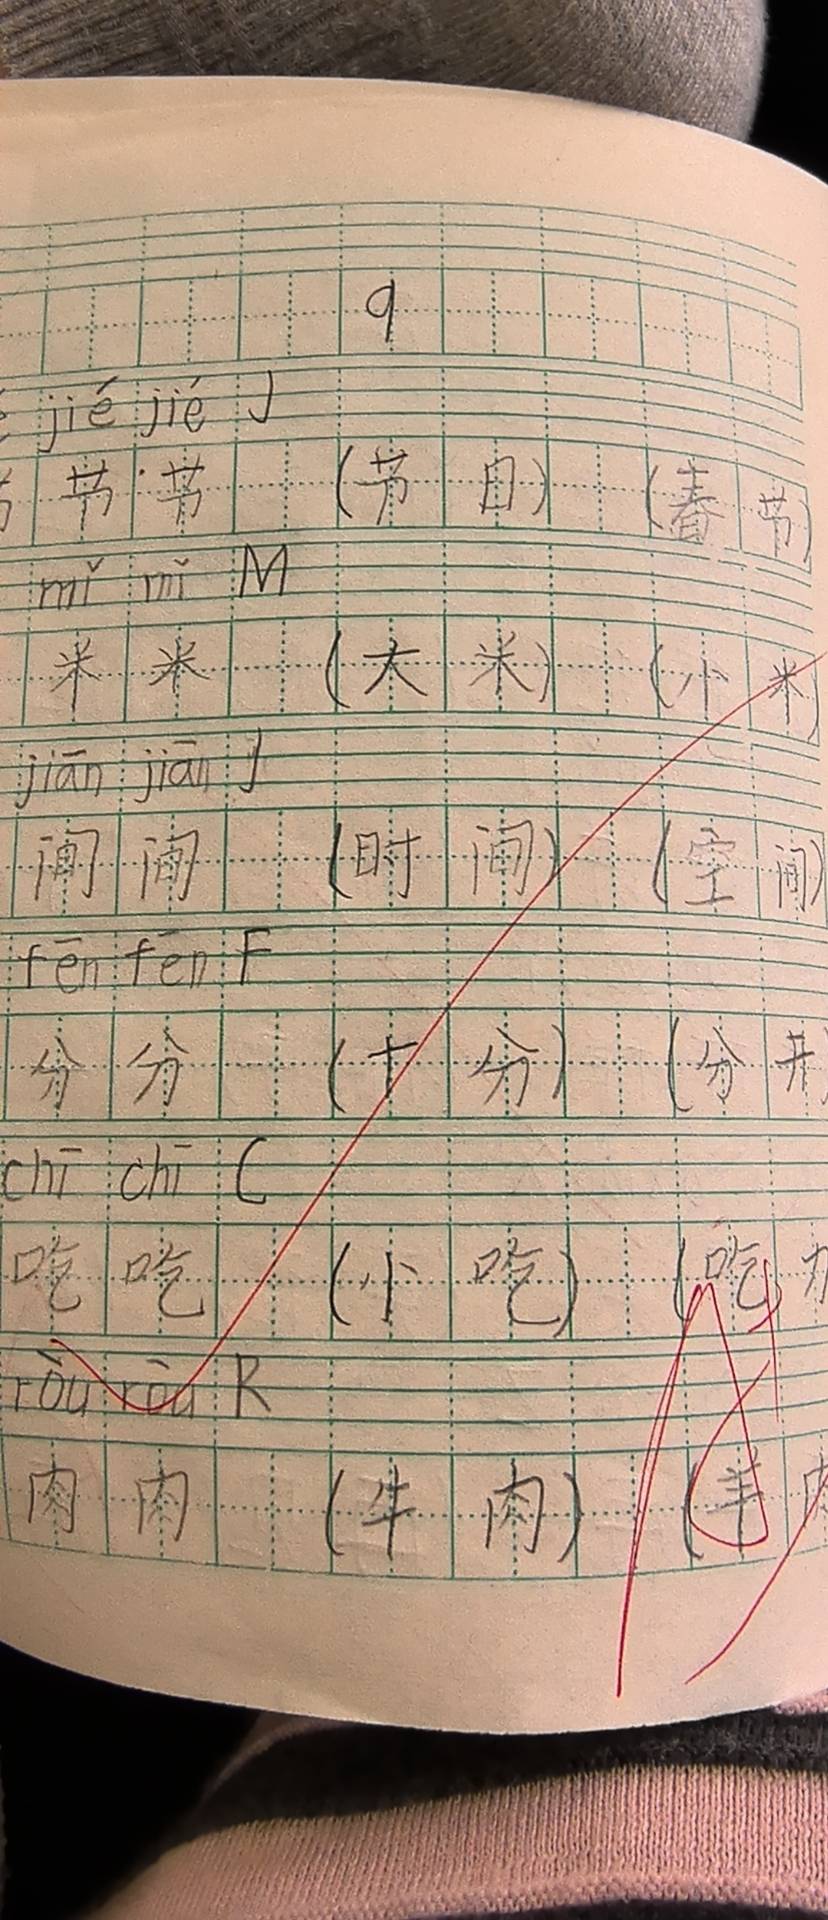 9
jié jié J
节 节 (节日) (春节)
mǐ mǐ M
米 米 (大米) (小米)
jiān jiān J
间 间 (时间) (空间)
fēn fēn F
分 分 (十分) (分开)
chī chī C
吃 吃 (小吃) (吃力
ròu ròu R
肉 肉 (牛肉) (羊肉